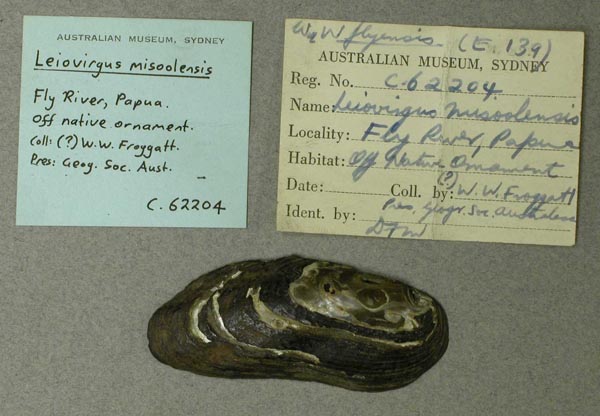 AUSTRALIAN MUSEUM, SYDNEY
Leiovirgus misoolensis
Fly River, Papua.
Off native ornament.
Coll: (?) W.W. Froggatt.
Pres: Geog. Soc. Aust.
C.62204
flyensis (E. 139)
AUSTRALIAN MUSEUM, SYDNEY
Reg. No. C.62204
Name: Leiovirgus misoolensis
Locality: Fly River, Papua
Habitat: Off Native Ornament
Date: Coll. by: (?) W. W. Froggatt
Pres. Geogr. Soc. Australasia
Ident. by: